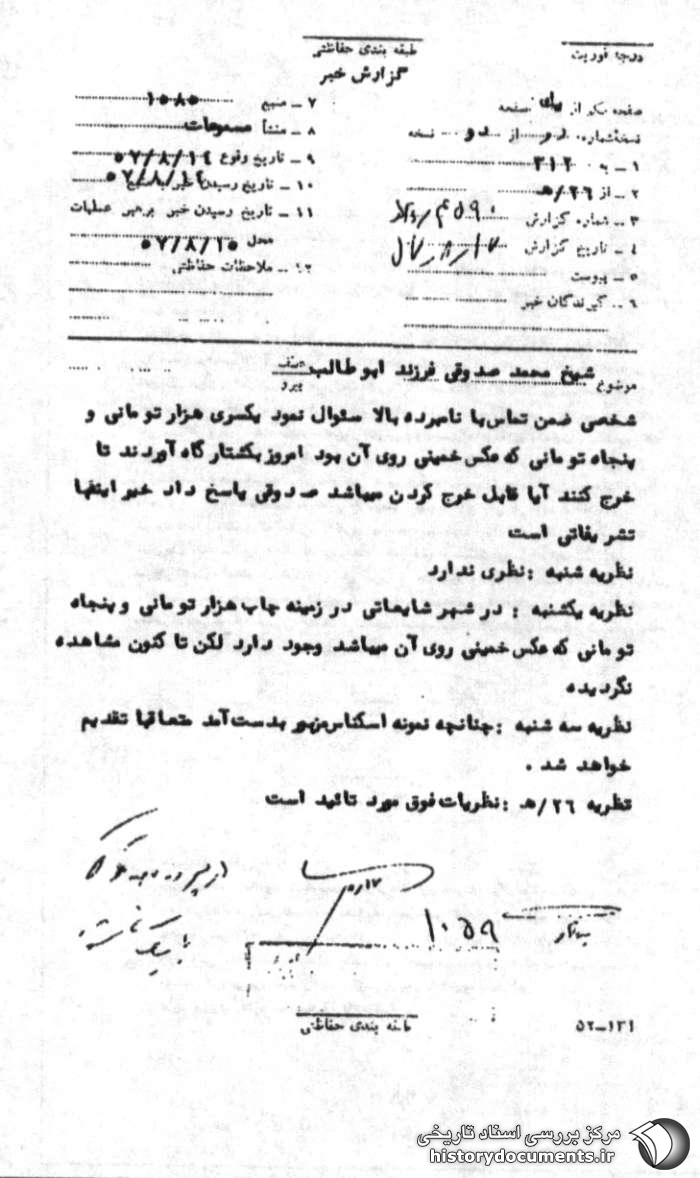 درجه فوریت
طبقه بندی حفاظتی
گزارش خبر
صفحه یکم از یک صفحه
نسخه شماره دو از دو نسخه
۱ ـ به ۳۱۲
۲ ـ از ۲۶/ هـ
۳ ـ شماره گزارش ۴۵۹۰
۴ ـ تاریخ گزارش
۵ ـ پیوست
۶ ـ گیرندگان خبر
۷ ـ منبع ۱۰۸۰
۸ ـ منشأ مسموعات
۹ ـ تاریخ وقوع ۵۷/۸/۱۴
۱۰ ـ تاریخ رسیدن خبر به منبع ۵۷/۸/۱۴
۱۱ ـ تاریخ رسیدن خبر برهبر عملیات
محل ۵۷/۸/۱۵
۱۲ ـ ملاحظات حفاظتی
موضوع شیخ محمد صدوقی فرزند ابوطالب
عطف
پیرو
شخصی ضمن تماس با نامبرده بالا سئوال نمود یکسری هزار تومانی و
پنجاه تومانی که عکس خمینی روی آن بود امروز بکشتارگاه آوردند تا
خرج کنند آیا قابل خرج کردن میباشد صدوقی پاسخ داد خیر اینها
تشریفاتی است
نظریه شنبه : نظری ندارد
نظریه یکشنبه : در شهر شایعاتی در زمینه چاپ هزار تومانی و پنجاه
تومانی که عکس خمینی روی آن میباشد وجود دارد لکن تا کنون مشاهده
نگردیده
نظریه سه شنبه : چنانچه نمونه اسکناس مزبور بدست آمد متعاقبا تقدیم
خواهد شد .
نظریه ۲۶/ هـ : نظریات فوق مورد تائید است
۱۰۵۹
طبقه بندی حفاظتی
۵۲-۱۳۱
مرکز بررسی اسناد تاریخی
historydocuments.ir